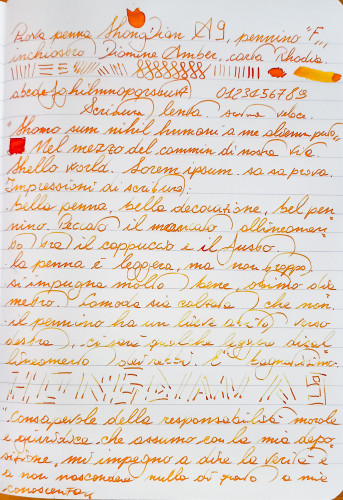 Prova penna ShongDian A9, pennino "F",
inchiostro Diamine Amber, carta Rhodia.
abcdefghilmnopqrstuvz 0123456789
Scrittura lenta scrittura veloce.
"Homo sum nihil humani a me alienum puto"
Nel mezzo del cammin di nostra vita
Hello world. Lorem ipsum. sa sa prova.
Impressioni di scrittura:
Bella penna, bella decorazione, bel pen
nino. Peccato il mancato allineamen
to tra il cappuccio e il fusto.
La penna è leggera, ma non troppo,
si impugna molto bene, ottimo dia
metro. Comoda sia calzata che non.
il pennino ha un lieve verso
destra, ci sarà qualche leggero disal
lineamento dei rebbi. È
"Consapevole della responsabilità morale
e giuridica che assumo con la mia depo
sizione, mi impegno a dire la verità e
a non nascondere nulla di quanto a mia
conoscenza"